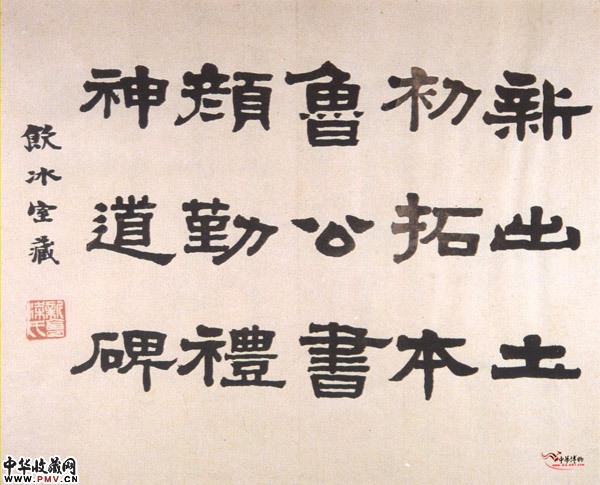 新出土
初拓本
魯公書
顏勤禮
神道碑
飲冰室藏
中华收藏网
WWW.PMV.CN
中华博物